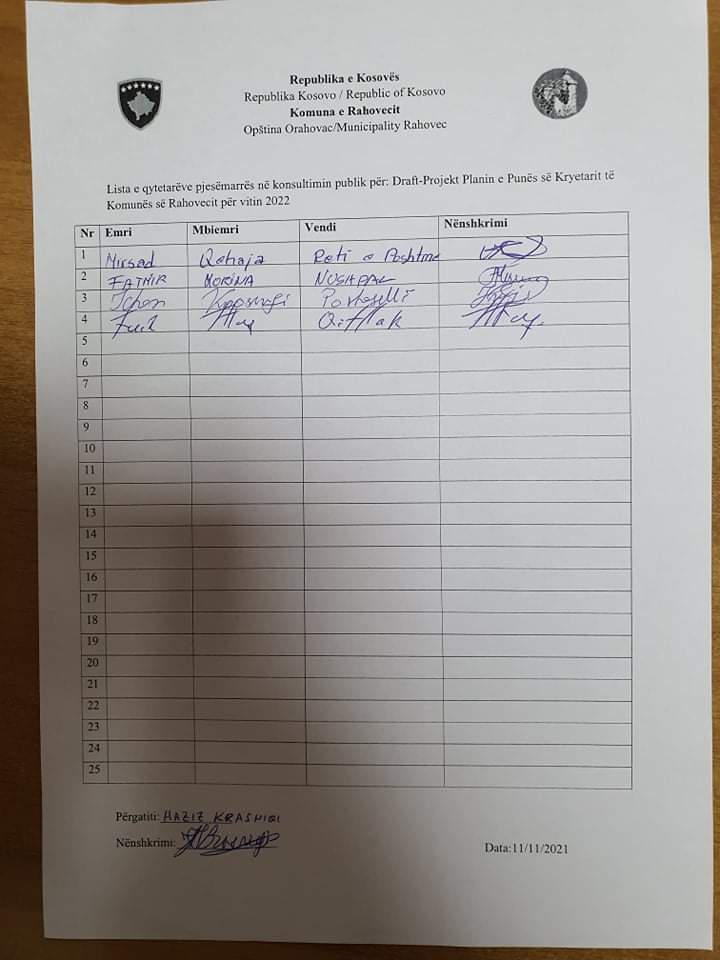 Republika e Kosovës
Republika Kosovo / Republic of Kosovo
Komuna e Rahovecit
Opština Orahovac/Municipality Rahovec
Lista e qytetarëve pjesëmarrës në konsultimin publik për: Draft-Projekt Planin e Punës së Kryetarit të
Komunës së Rahovecit për vitin 2022
Nr Emri Mbiemri Vendi Nënshkrimi
1 Mirsad Qehaja Reti e Poshtme
2 FATMIR MORINA
3
4
5
6
7
8
9
10
11
12
13
14
15
16
17
18
19
20
21
22
23
24
25
Përgatiti: HAZIZ KRASNIQI
Nënshkrimi:
Data:11/11/2021